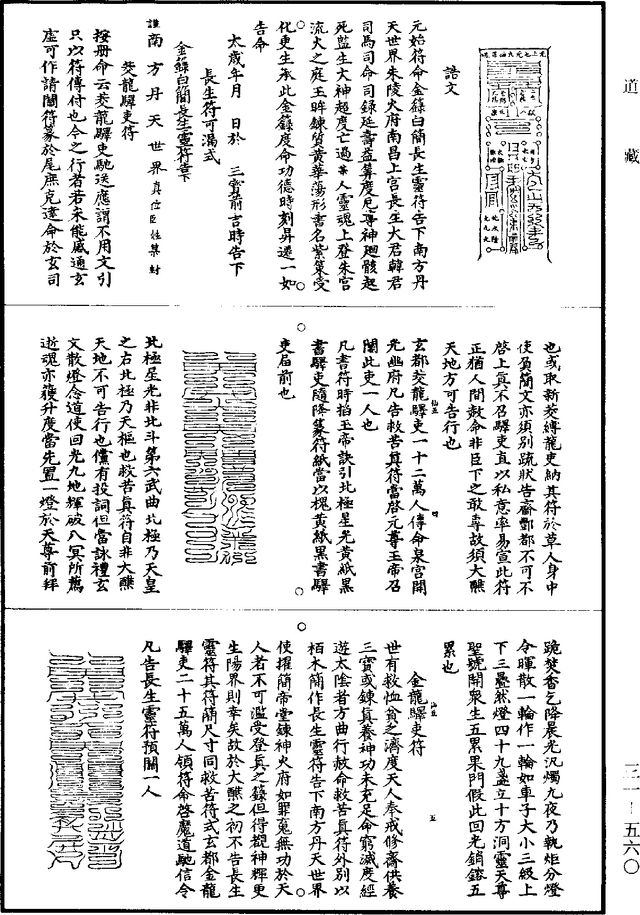 道藏
三一－五六〇
誥文
元始符命金籙白簡長生靈符告下南方丹
天世界朱陵火府南昌上宮長生大君韓君
司馬司命司錄延壽益算度厄尊神迴骸起
死監生大神超度亡過某人靈魂上登朱宮
流火之庭玉眸鍊質黃華蕩形書名紫策受
化更生承此金籙度命功德時刻昇遷一如
告命
太歲年月　日於　三寶前吉時告下
長生符可漏式
金籙白簡長生靈符告下
謹南方丹天世界真位臣姓某封
茭龍驛吏符
按冊命云茭龍驛吏馳送應謂不用文引
只以符傳付也今之行者若未能感通玄
虛可作請閽符篆於尾庶克達命於玄司
也或取新茭縛龍吏納其符於草人身中
使負簡文亦須別疏狀告齋酆都不可不
啓上真不召驛吏直以私意率易宣此符
正猶人間赦命非臣下之敢專故須大醮
天地方可告行也
玄都茭龍驛吏一十二萬人傳命泉宮開
光幽府凡告救苦真符當啓元尊玉帝召
閽此吏一人也
凡書符時掐玉帝訣引北極星光黃紙黑
書驛吏隨降篆符紙當以槐黃紙黑書驛
吏居前也
北極星光非北斗第六武曲北極乃天皇
之右北極乃天樞也救苦真符自非大醮
天地不可告行也儻有投詞但當詠禮玄
文散燈念道使回光九地輝破八冥所薦
逝魂亦獲升度當先置一燈於天尊前拜
跪焚香乞降晨光汎燭九夜乃執炬分燈
令暉散一輪作一輪如車子大小三級上
下三疊然燈四十九盞立十方洞靈天尊
聖號開衆生五累果門假此回光銷鎔五
累也
金龍驛吏符
世有救恤貧乏濟度天人奉戒修齋供養
三寶或鍊真養神功未充足命窮滅度經
遊太陰者方曲行赦命救苦真符外別以
栢木簡作長生靈符告下南方丹天世界
使擢簡帝堂鍊神火府如罪寃無功於天
人者不可濫受登真之籙但得視神輝更
生陽界則幸矣故於大醮之初不告長生
靈符其符簡尺寸同救苦符式玄都金龍
驛吏二十五萬人領符命啓魔道馳信令
凡告長生靈符預閽一人